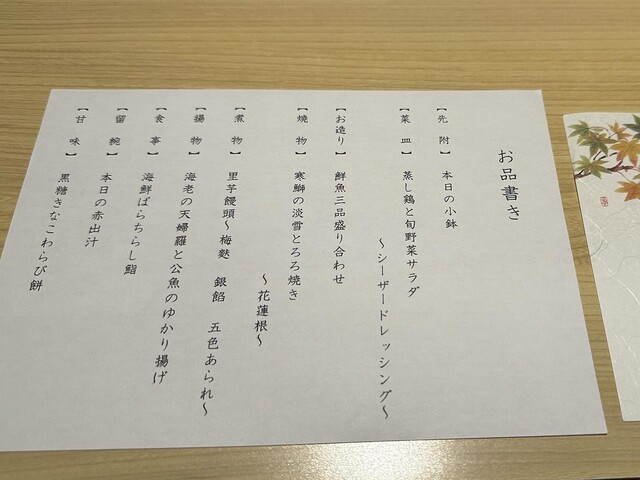 お品書き
【先附】 本日の小鉢
【菜皿】 蒸し鶏と旬野菜サラダ
～シーザードレッシング～
【お造り】 鮮魚三品盛り合わせ
【焼物】 寒鰤の淡雪とろろ焼き
～花蓮根～
【煮物】 里芋饅頭～梅麩 銀餡 五色あられ～
【揚物】 海老の天婦羅と公魚のゆかり揚げ
【食事】 海鮮ばらちらし鮨
【留椀】 本日の赤出汁
【甘味】 黒糖きなこわらび餅